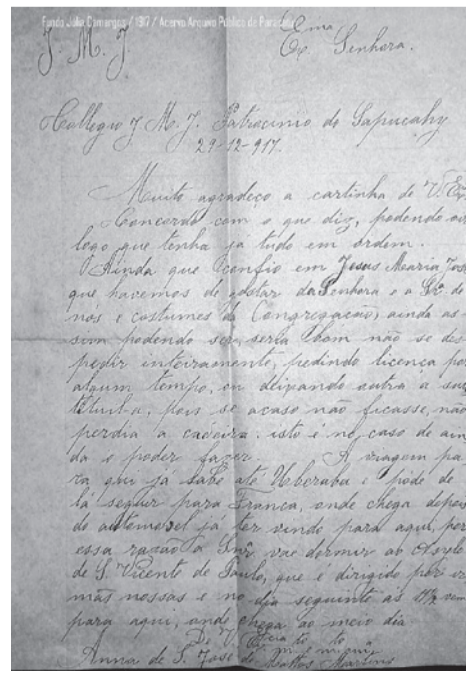 Fundo Júlia Camargos / 1917 / Acervo Arquivo Público de Paracatu
J. M. J. Exma
Senhora.
Collegio J. M. J. Patrocinio do Sapucahy
29-12-917.
Muito agradeço a cartinha de V. Ex
Concordo com o que diz, podendo vir
logo que tenha já tudo em ordem.
Ainda que confio em Jesus Maria José
que havemos de gostar da Senhora e a Sr. de
nos e costumes da Congregação, ainda as-
sim podendo ser, seria bom não se des-
pedir inteiramente, pedindo licença por
algum tempo, ou deixando outra a sub
tituil-a, pois se acaso não ficasse, não
perdia a cadeira: isto é no caso de ain
da o poder fazer. A viagem pa-
ra qui já sabe até Uberaba e pode de
lá seguir para Franca, onde chega depois
do automovel já ter vindo para aqui, por
essa razão a Snra vae dormir ao Asylo
de S. Vicente de Paulo, que é dirigido por ir
mãs nossas e no dia seguinte as 11½ vem
para aqui, onde chega ao meio dia
De V. Ex
Anna de S. José de Mattos Martins